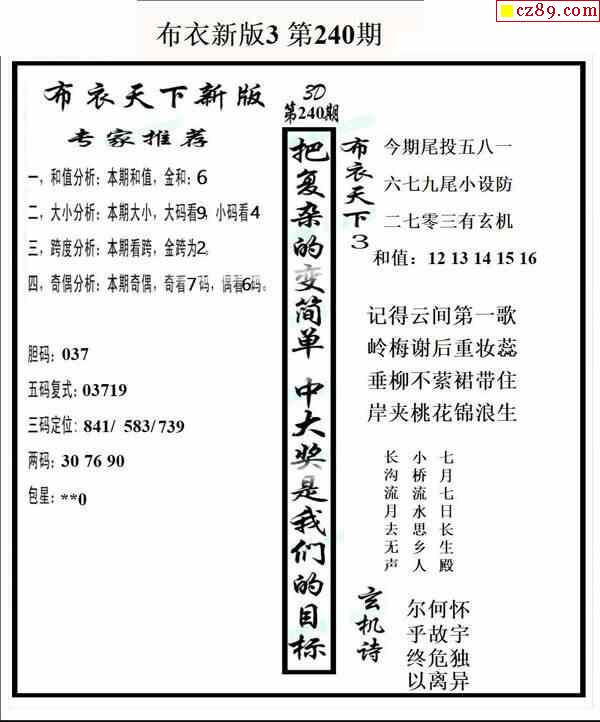 cz89.com
布衣新版3 第240期
布衣天下新版
专家推荐
一，和值分析：本期和值，金和：6
二，大小分析：本期大小，大码看9，小码看4
三，跨度分析：本期看跨，金跨为2。
四，奇偶分析：本期奇偶，奇看7码，偶看6码。
胆码：037
五码复式：03719
三码定位：841/ 583/739
两码：30 76 90
包星：**0
3D
第240期
把复杂的变简单 中大奖是我们的目标
布衣天下3
今期尾投五八一
六七九尾小设防
二七零三有玄机
和值：12 13 14 15 16
记得云间第一歌
岭梅谢后重妆蕊
垂柳不萦裙带住
岸夹桃花锦浪生
长 小 七
沟 桥 月
流 流 七
月 水 日
去 思 长
无 乡 生
声 人 殿
玄机诗
尔何怀
乎故宇
终危独
以离异